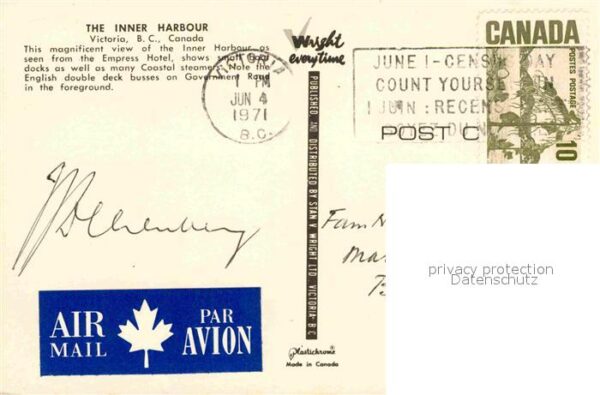 THE INNER HARBOUR
Victoria, B. C., Canada
This magnificent view of the Inner Harbour as
seen from the Empress Hotel, shows small boat
docks as well as many Coastal steamers. Note the
English double deck busses on Government Road
in the foreground.
Wright
everytime
VICTORIA
1 PM
JUN 4
1971
B.C.
JUNE 1 - CENSUS DAY
COUNT YOURSELF IN
1 JUIN : RECENS
CANADA
POSTES POSTAGE
10
POST C
PUBLISHED AND DISTRIBUTED BY STAN V. WRIGHT LTD. VICTORIA B.C.
Fam
privacy protection
Datenschutz
AIR
MAIL
PAR
AVION
Plastichrome
Made in Canada